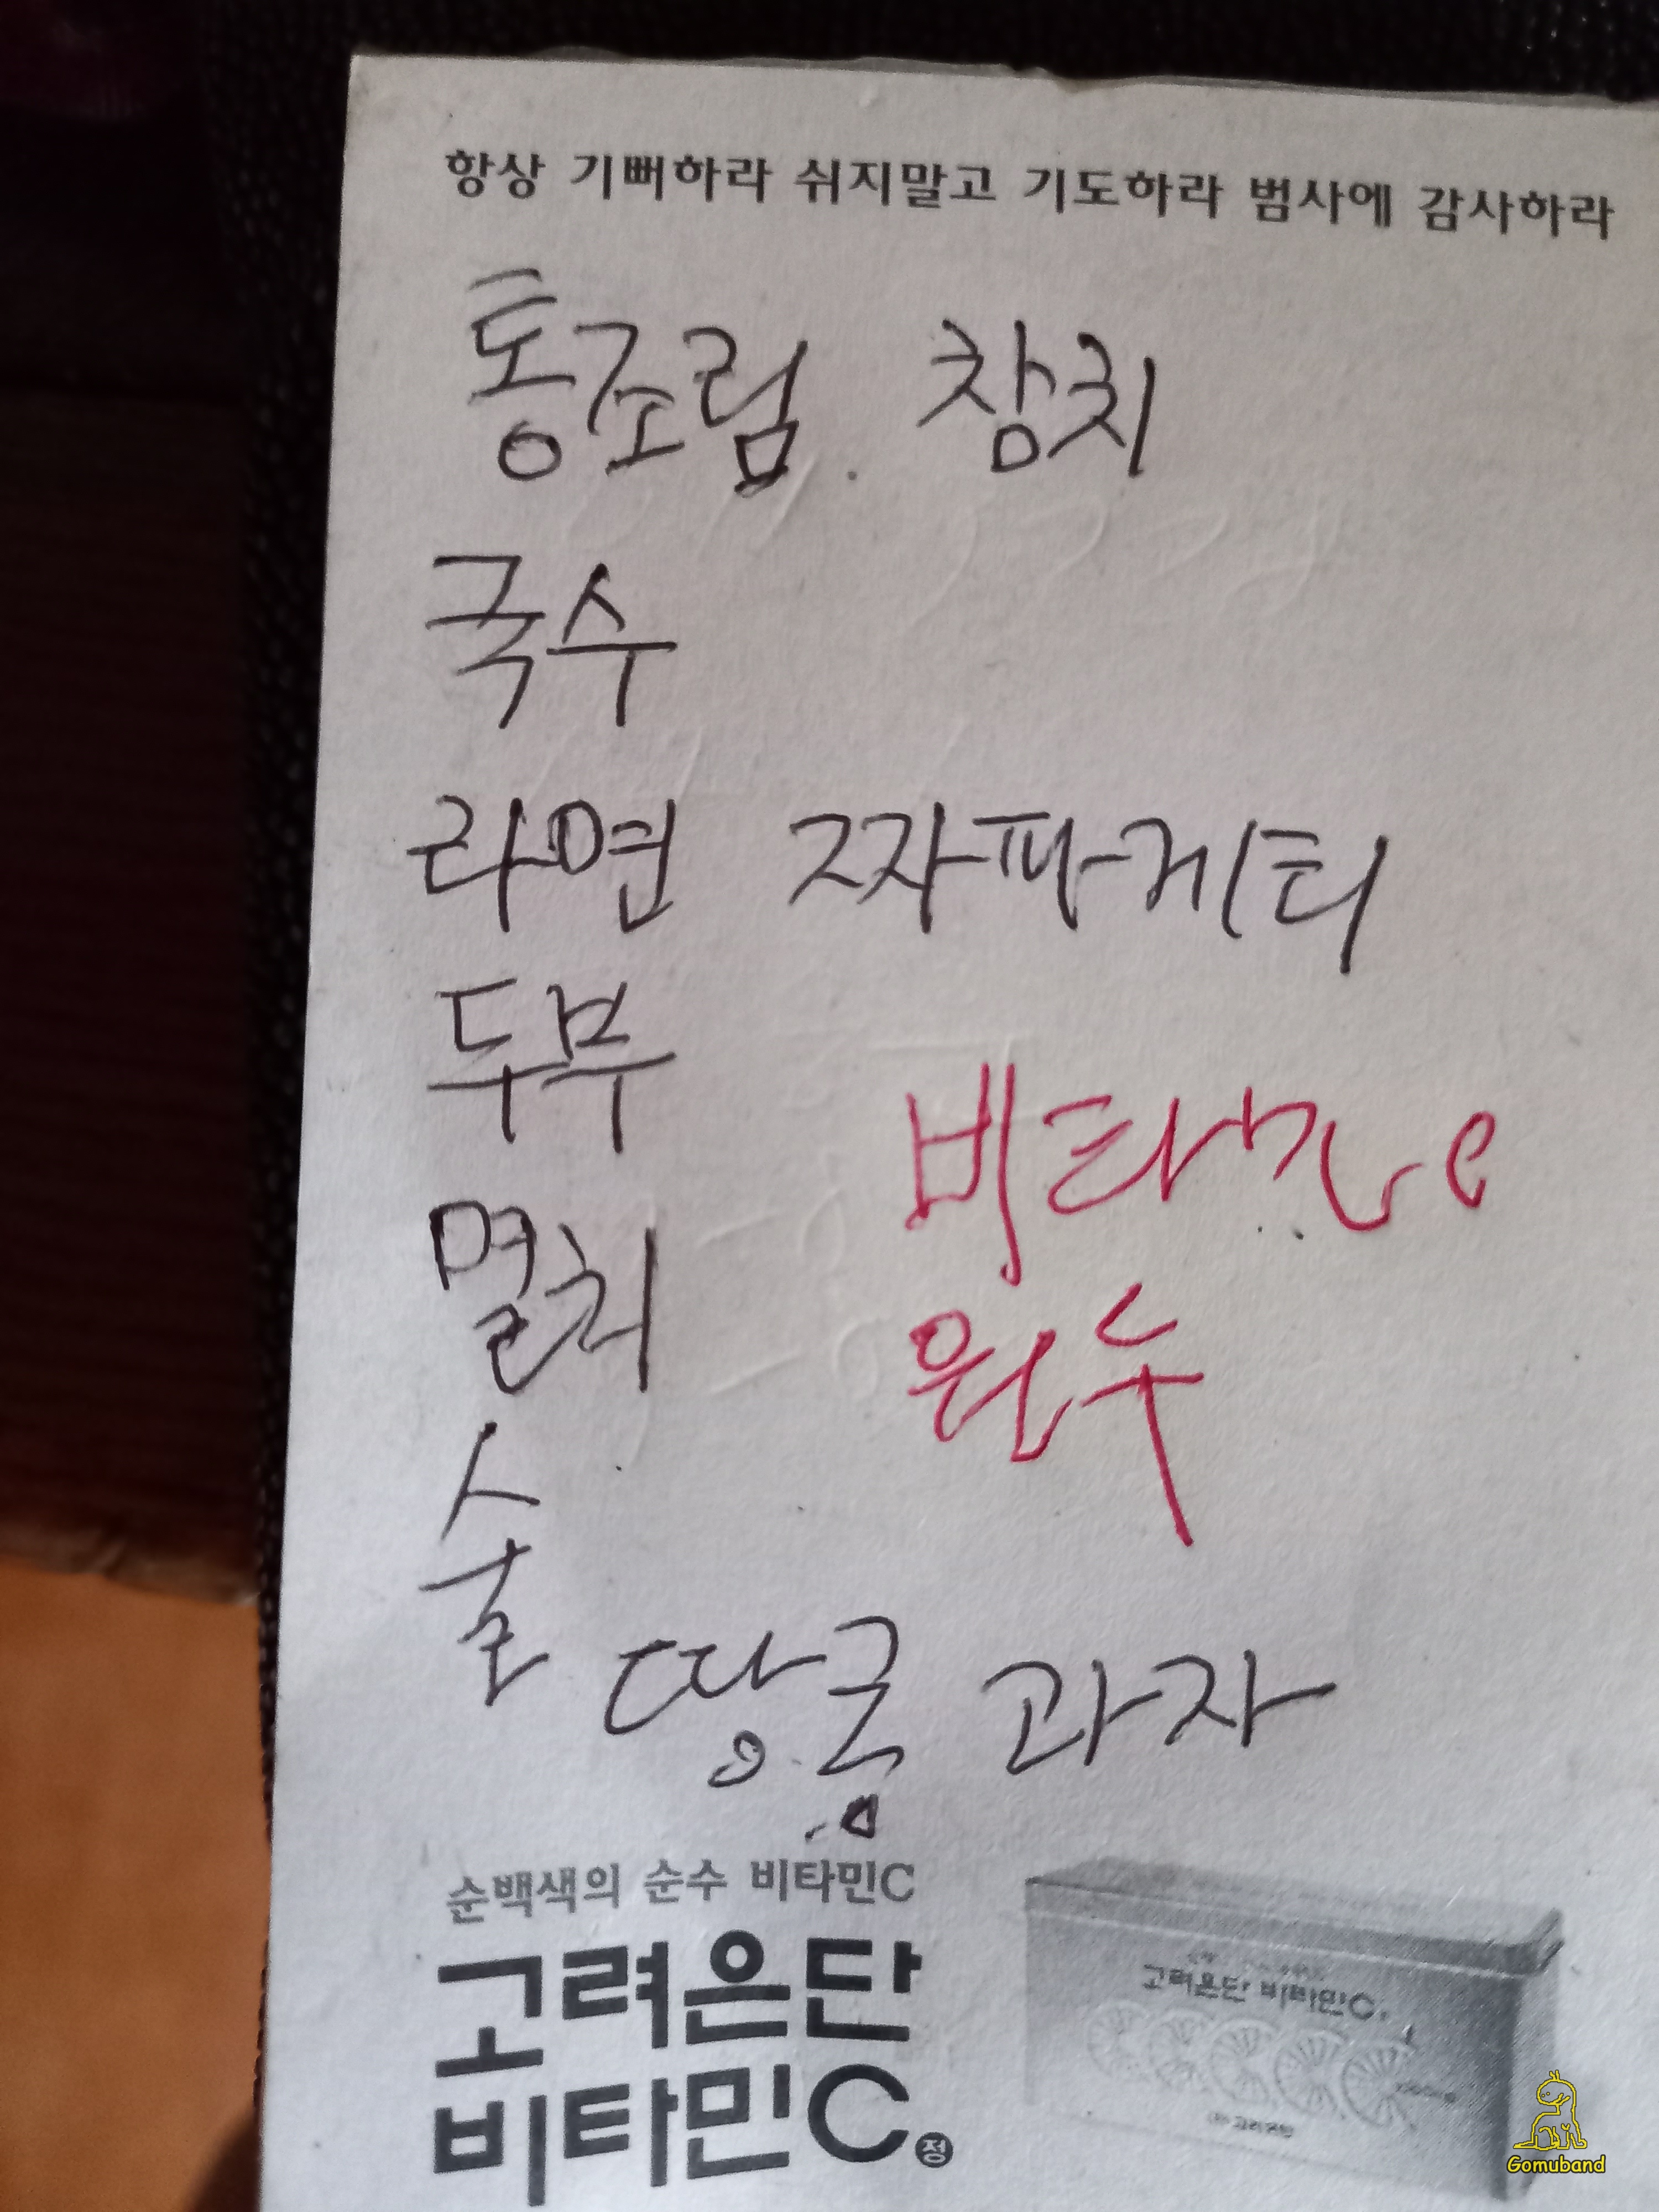 항상 기뻐하라 쉬지말고 기도하라 범사에 감사하라
통조림. 참치
국수
라면 짜파게티
두부
비타민 c
멸치
술
땅콩 과자
순백색의 순수 비타민C
고려은단
비타민C 정
고려은단 비타민C
Gomuband